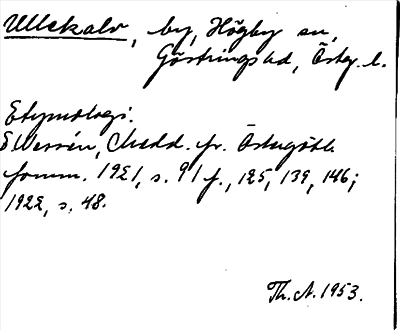 Ullekalv, by, Högby sn,
Göstrings hd, Östg. l.
Etymologi:
E Wessén, Medd. fr. Östergötl.
fornm. 1921, s. 91 f., 125, 139, 146;
1922, s. 48.
Th. A. 1953.